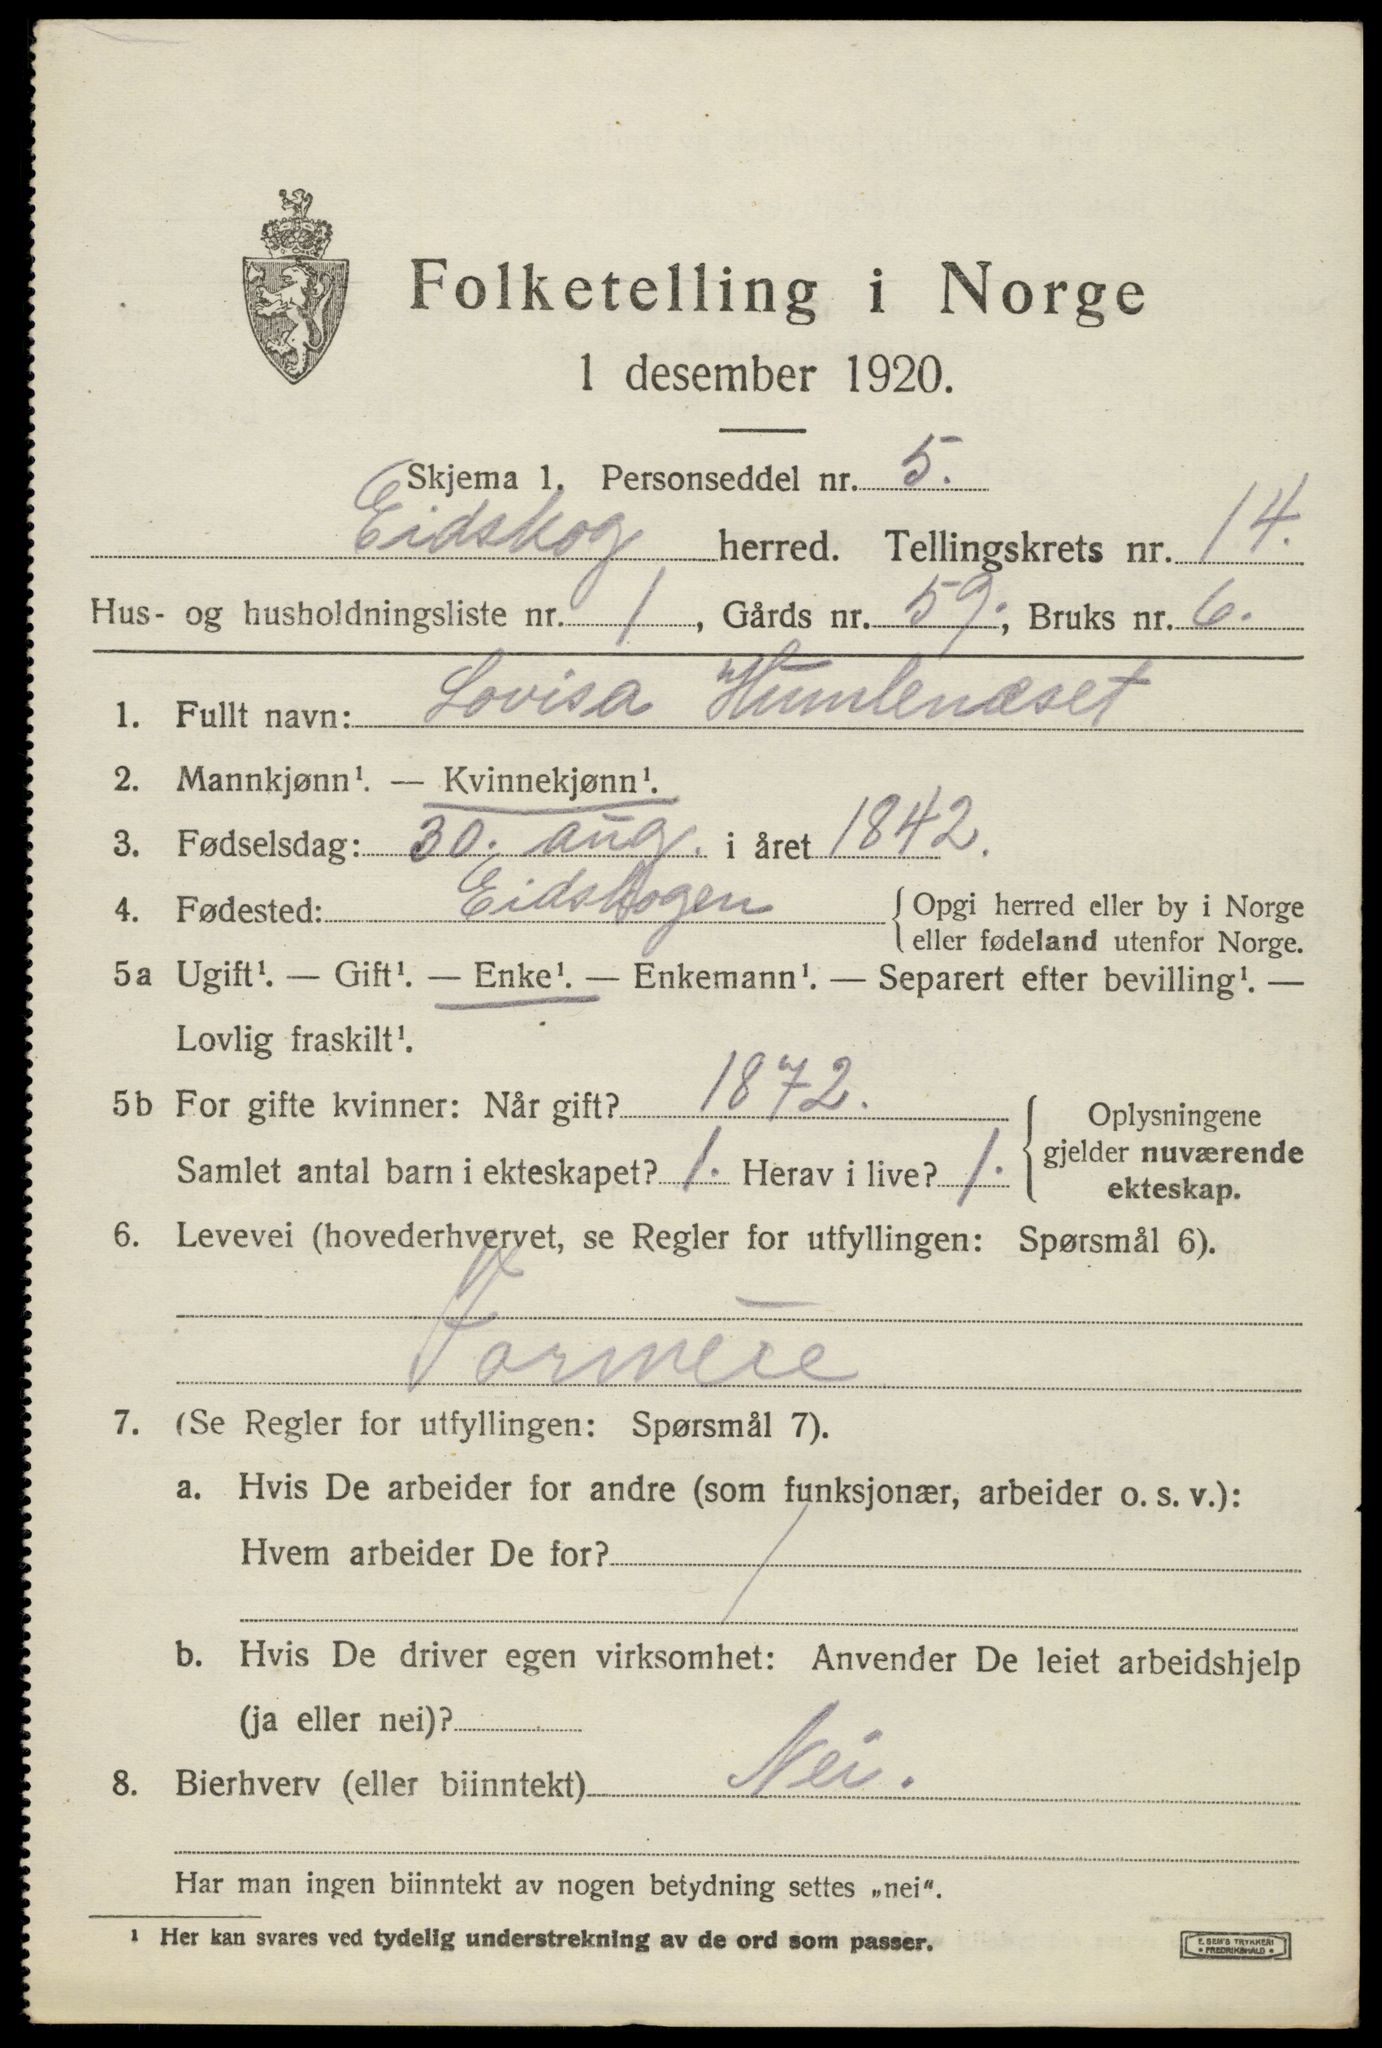 Folketelling i Norge
1 desember 1920.
Skjema 1. Personseddel nr. 5.
Eidskog herred. Tellingskrets nr. 14.
Hus- og husholdningsliste nr. 1, Gårds nr. 59.; Bruks nr. 6.
1. Fullt navn: Lovisa Humlenæset
2. Mannkjønn¹. — Kvinnekjønn¹.
3. Fødselsdag: 30. aug. i året 1842.
4. Fødested: Eidskogen { Opgi herred eller by i Norge
eller fødeland utenfor Norge.
5a Ugift¹. — Gift¹. — Enke¹. — Enkemann¹. — Separert efter bevilling¹. —
Lovlig fraskilt¹.
5b For gifte kvinner: Når gift? 1872.
Samlet antal barn i ekteskapet? 1. Herav i live? 1.
{ Oplysningene
gjelder nuværende
ekteskap.
6. Levevei (hovederhvervet, se Regler for utfyllingen: Spørsmål 6).
7. (Se Regler for utfyllingen: Spørsmål 7).
a. Hvis De arbeider for andre (som funksjonær, arbeider o. s. v.):
Hvem arbeider De for? /
b. Hvis De driver egen virksomhet: Anvender De leiet arbeidshjelp
(ja eller nei)?
8. Bierhverv (eller biinntekt) Nei.
Har man ingen biinntekt av nogen betydning settes „nei“.
¹ Her kan svares ved tydelig understrekning av de ord som passer.
E. SEM'S TRYKKERI
• FREDRIKSHALD •